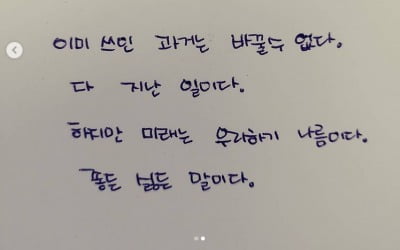 이미 쓰인 과거는 바꿀수 없다.
다 지난 일이다.
하지만 미래는 우리하기 나름이다.
똥든 넒든 말이다.